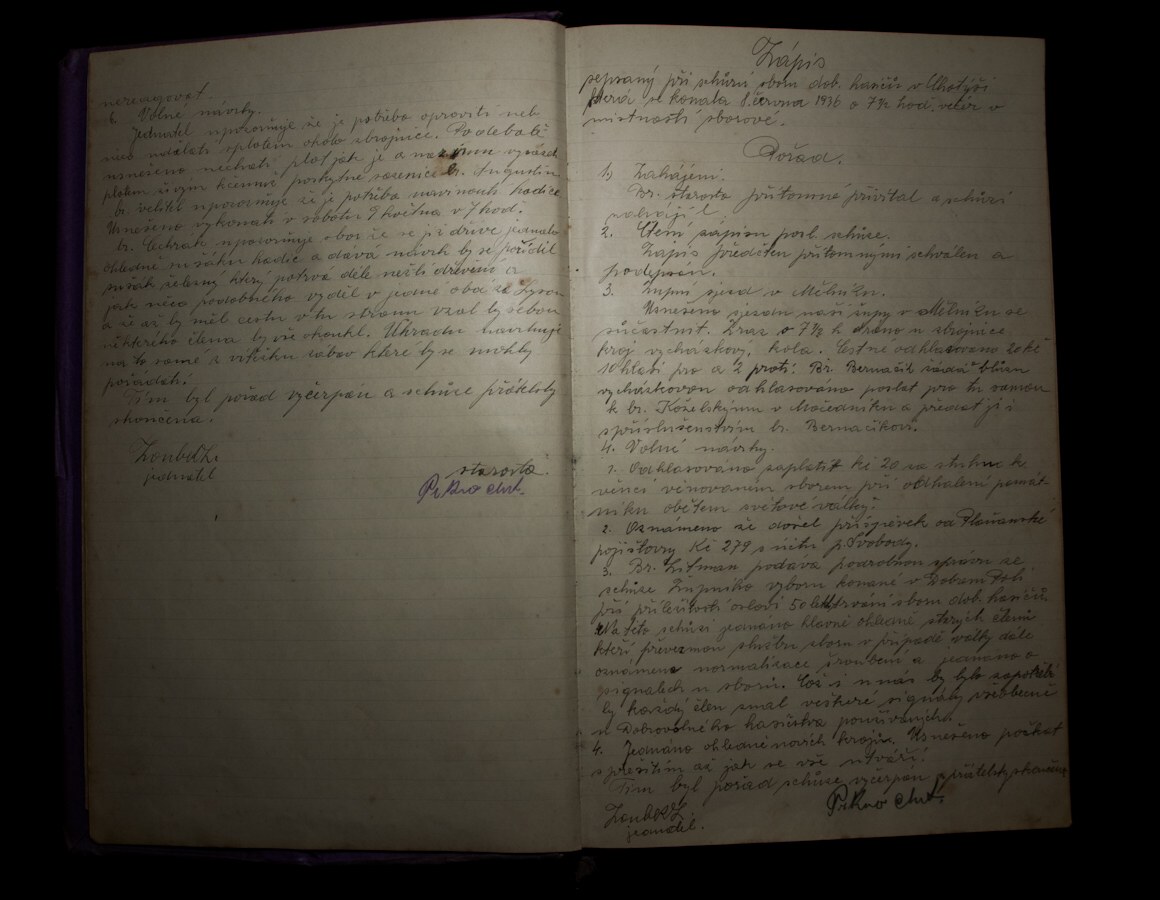 nereagovat.
6. Volné návrhy.
Jednatel upozorňuje že je potřeba opraviti neb
udělati oplocení okolo zbrojnice. Po debatě
usneseno nechati plot jak je a
plotem živým k čemuž poskytne sazenice br. Augustin
br. velitel upozorňuje že je potřeba navinouti hadice
Usneseno vykonati v sobotu 9 května v 7 hod.
br. Čechrák upozorňuje sbor že se již dříve jednalo
ohledně sušáku hadic a dává návrh by se pořídil
sušák železný který potrvá déle nežli dřevěný a
jak něco podobného viděl v jedné obci
a že až by měl cestu v tu stranu vzal by sebou
některého člena by vše okoukl. Úhradu navrhuje
na to samé z výtěžku zábav které by se mohly
pořádati.
Tím byl pořad vyčerpán a schůze přátelsky
skončena.
jednatel
starosta
Zápis
sepsaný při schůzi sboru dob. hasičů v Chotýši
která se konala 8. června 1936 o 7½ hod. večer v
místnosti sborové.
Pořad.
1) Zahájení.
Br. starosta přítomné přivítal a schůzi
zahájil.
2. Čtení zápisu posl. schůze.
Zápis předčten přítomnými schválen a
podepsán.
3. Župní sjezd v Mělníku.
Usneseno sjezdu naší župy v Mělníku se
súčastnit. Sraz o 7½ h ráno u zbrojnice
kroj vycházkový, kola. Čestné odhlasováno 20 kč
10 hlasů pro a 2 proti. Br. Bernačik žádá blůzu
vycházkovou odhlasováno poslat pro tu samou
k br. Koželskýmu v Močedníku a předat ji i
s příslušenstvím br. Bernačikovi.
4. Volné návrhy.
1. Odhlasováno zaplatit kč 20 za stuhu k
věnci věnovaném sborem při odhalení pomní-
níku obětem světové války.
2. Oznámeno že došel příspěvek od Plaňanské
pojišťovny Kč 279 p. Svobody.
3. Br. Litman podává podrobnou zprávu ze
schůze Župního výboru konané v Dobrém Poli
při příležitosti oslavi 50 let trvání sboru dob. hasičů.
Na této schůzi jednáno hlavně ohledně starých členů
kteří převezmou službu sboru v případě války dále
oznámeno normalisace šroubení a jednáno o
signálech u sborů. Což i u nás by bylo zapotřebí
by každý člen znal veškeré signály všeobecně
u Dobrovolného hasičstva používaných.
4. Jednáno ohledně nových krojů. Usneseno počkat
s přešitím až jak se vše utváří.
Tím byl pořad schůze vyčerpán a přátelsky skončena
jednatel.